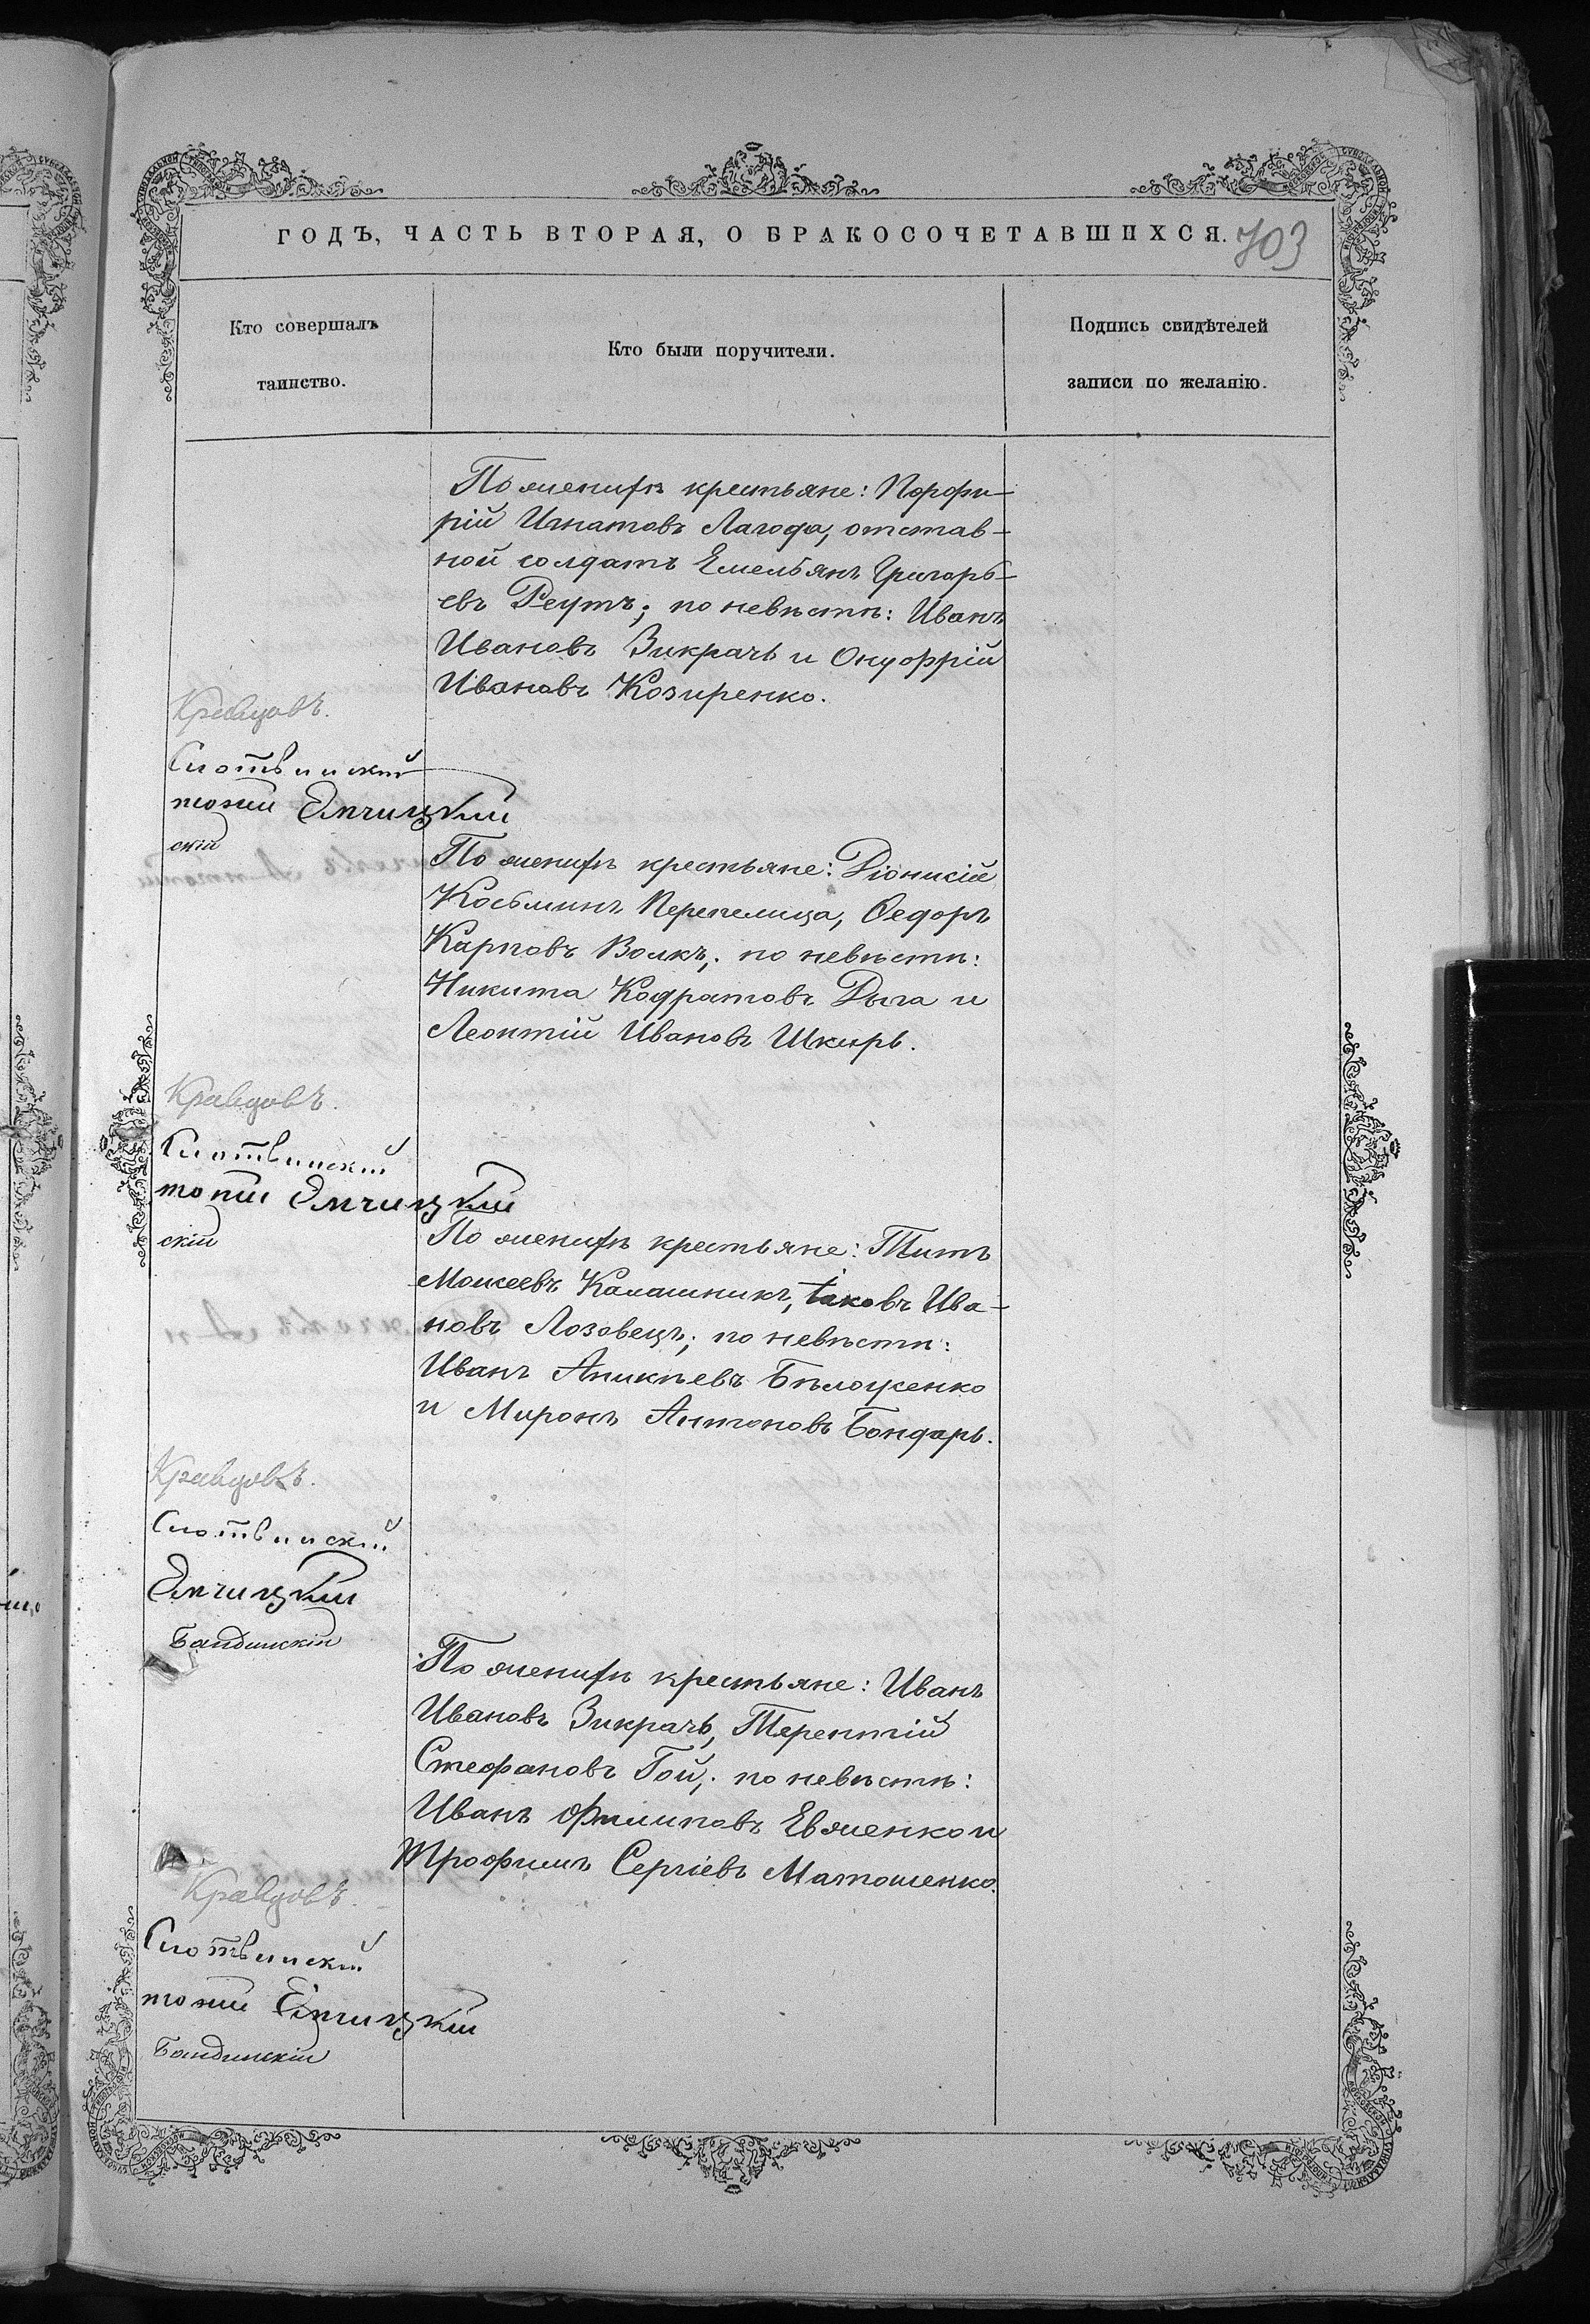 ГОДЪ, ЧАСТЬ ВТОРАЯ, О БРАКОСОЧЕТАВШИХСЯ.
703
Кто совершалъ
таинство.
Кто были поручители.
Подпись свидѣтелей
записи по желанію.
По женихѣ крестьяне: Порфи-
рій Игнатовъ Лагода, отстав-
ной солдатъ Емельянъ Григорь-
евъ Реутъ; по невѣстѣ: Иванъ
Ивановъ Зикрачь и Онуфрій
Ивановъ Козиренко.
Кравцовъ.
Слотвинскій
тоній Емчицкій
скій
По женихѣ крестьяне: Діонисій
Косьминъ Перепелица, Ѳедоръ
Карповъ Волкъ; по невѣстѣ:
Никита Кодратовъ Дыга и
Леонтій Ивановъ Шкирь.
Кравцовъ.
Слотвинскій
тоній Емчицкій
скій
По женихѣ крестьяне: Титъ
Моисеевъ Калашникъ, Іаковъ Ива-
новъ Лозовецъ; по невѣстѣ:
Иванъ Аникіевъ Бѣлоусенко
и Миронъ Антоновъ Бондарь.
Кравцовъ.
Слотвинскій
Емчицкій
По женихѣ крестьяне: Иванъ
Ивановъ Зикрачь, Терентій
Стефановъ Гой; по невѣстѣ:
Иванъ Филиповъ Евженко и
Трофимъ Сергіевъ Матошенко.
Кравцовъ.
Слотвинскій
тоній Емчицкій